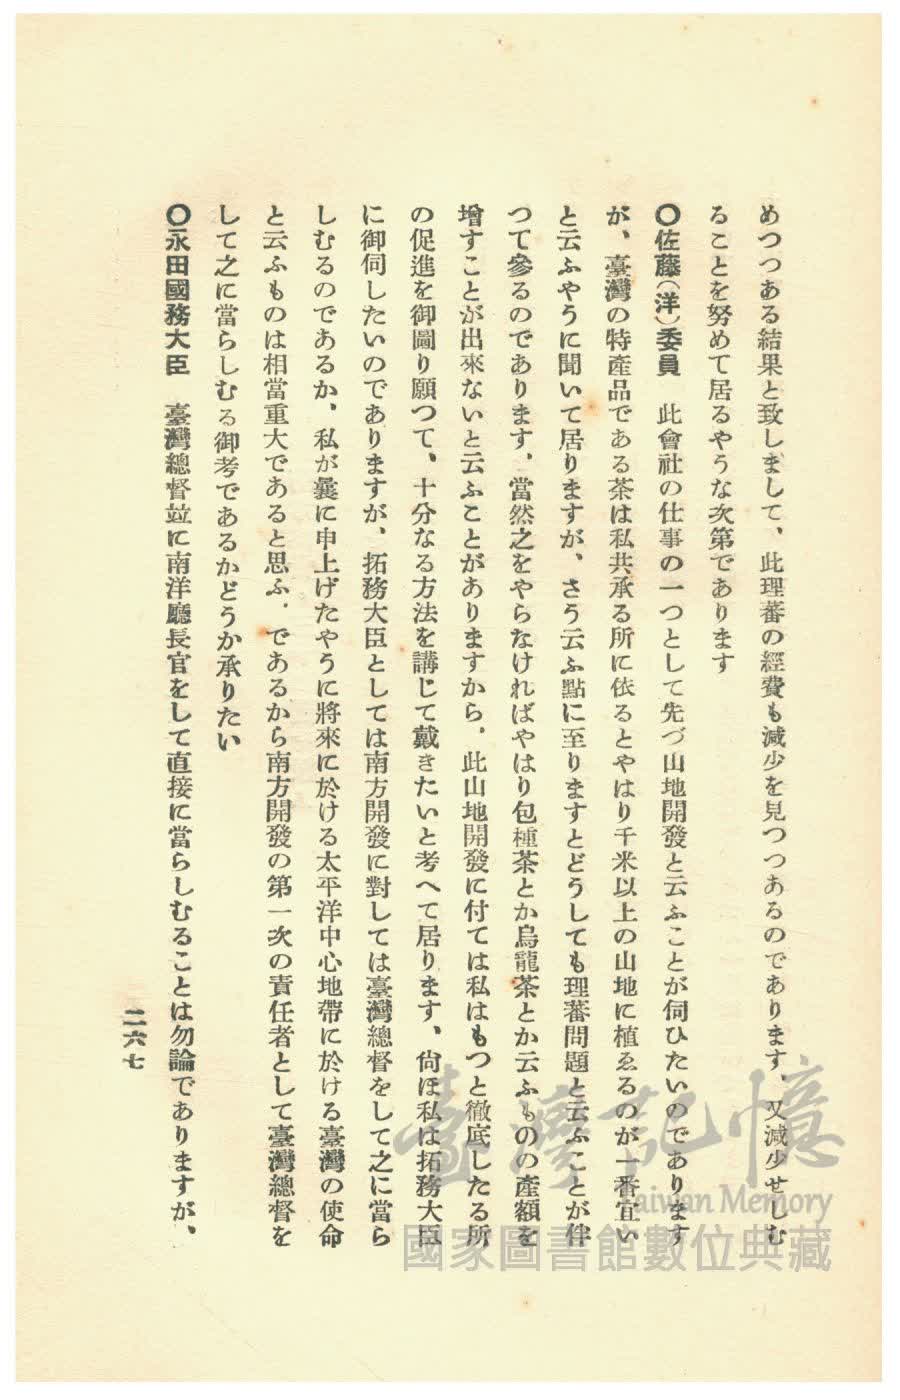 めつつある結果と致しまして、此理蕃の經費も減少を見つつあるのであります、又減少せしむ
ることを努めて居るやうな次第であります
〇佐藤(洋)委員　此會社の仕事の一つとして先づ山地開發と云ふことが伺ひたいのであります
が、臺灣の特產品である茶は私共承る所に依るとやはり千米以上の山地に植ゑるのが一番宜い
と云ふやうに聞いて居りますが、さう云ふ點に至りますとどうしても理蕃問題と云ふことが伴
つて參るのであります、當然之をやらなければやはり包種茶とか烏龍茶とか云ふものの產額を
增すことが出來ないと云ふことがありますから、此山地開發に付ては私はもつと徹底したる所
の促進を御圖り願つて、十分なる方法を講じて戴きたいと考へて居ります、尙ほ私は拓務大臣
に御伺したいのでありますが、拓務大臣としては南方開發に對しては臺灣總督をして之に當ら
しむるのであるか、私が曩に申上げたやうに將來に於ける太平洋中心地帶に於ける臺灣の使命
と云ふものは相當重大であると思ふ、であるから南方開發の第一次の責任者として臺灣總督を
して之に當らしむる御考であるかどうか承りたい
〇永田國務大臣　臺灣總督竝に南洋廳長官をして直接に當らしむることは勿論でありますが、
二六七
臺灣記憶
Taiwan Memory
國家圖書館數位典藏